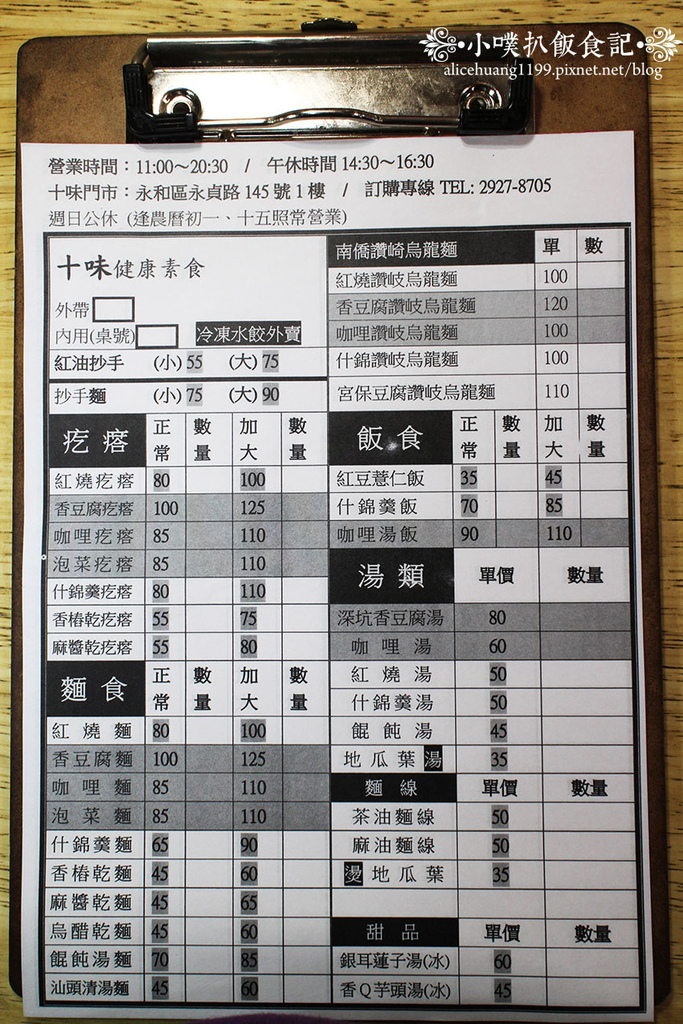 •小噗扒飯食記•
alicehuang1199.pixnet.net/blog
營業時間：11:00～20:30 / 午休時間 14:30～16:30
十味門市：永和區永貞路 145 號 1 樓 / 訂購專線 TEL: 2927-8705
週日公休 (逢農曆初一、十五照常營業)
十味健康素食
外帶
內用(桌號) 冷凍水餃外賣
紅油抄手 (小) 55 (大) 75
抄手麵 (小) 75 (大) 90
疙瘩 正常 數量 加大 數量
紅燒疙瘩 80 100
香豆腐疙瘩 100 125
咖哩疙瘩 85 110
泡菜疙瘩 85 110
什錦羹疙瘩 80 110
香椿乾疙瘩 55 75
麻醬乾疙瘩 55 80
麵食 正常 數量 加大 數量
紅燒麵 80 100
香豆腐麵 100 125
咖哩麵 85 110
泡菜麵 85 110
什錦羹麵 65 90
香椿乾麵 45 60
麻醬乾麵 45 65
烏醋乾麵 45 60
餛飩湯麵 70 85
汕頭清湯麵 45 60
南僑讚崎烏龍麵 單 數
紅燒讚岐烏龍麵 100
香豆腐讚岐烏龍麵 120
咖哩讚岐烏龍麵 100
什錦讚岐烏龍麵 100
宮保豆腐讚岐烏龍麵 110
飯食 正常 數量 加大 數量
紅豆薏仁飯 35 45
什錦羹飯 70 85
咖哩湯飯 90 110
湯類 單價 數量
深坑香豆腐湯 80
咖哩湯 60
紅燒湯 50
什錦羹湯 50
餛飩湯 45
地瓜葉湯 35
麵線 單價 數量
茶油麵線 50
麻油麵線 50
燙地瓜葉 35
甜品 單價 數量
銀耳蓮子湯(冰) 60
香Q芋頭湯(冰) 45